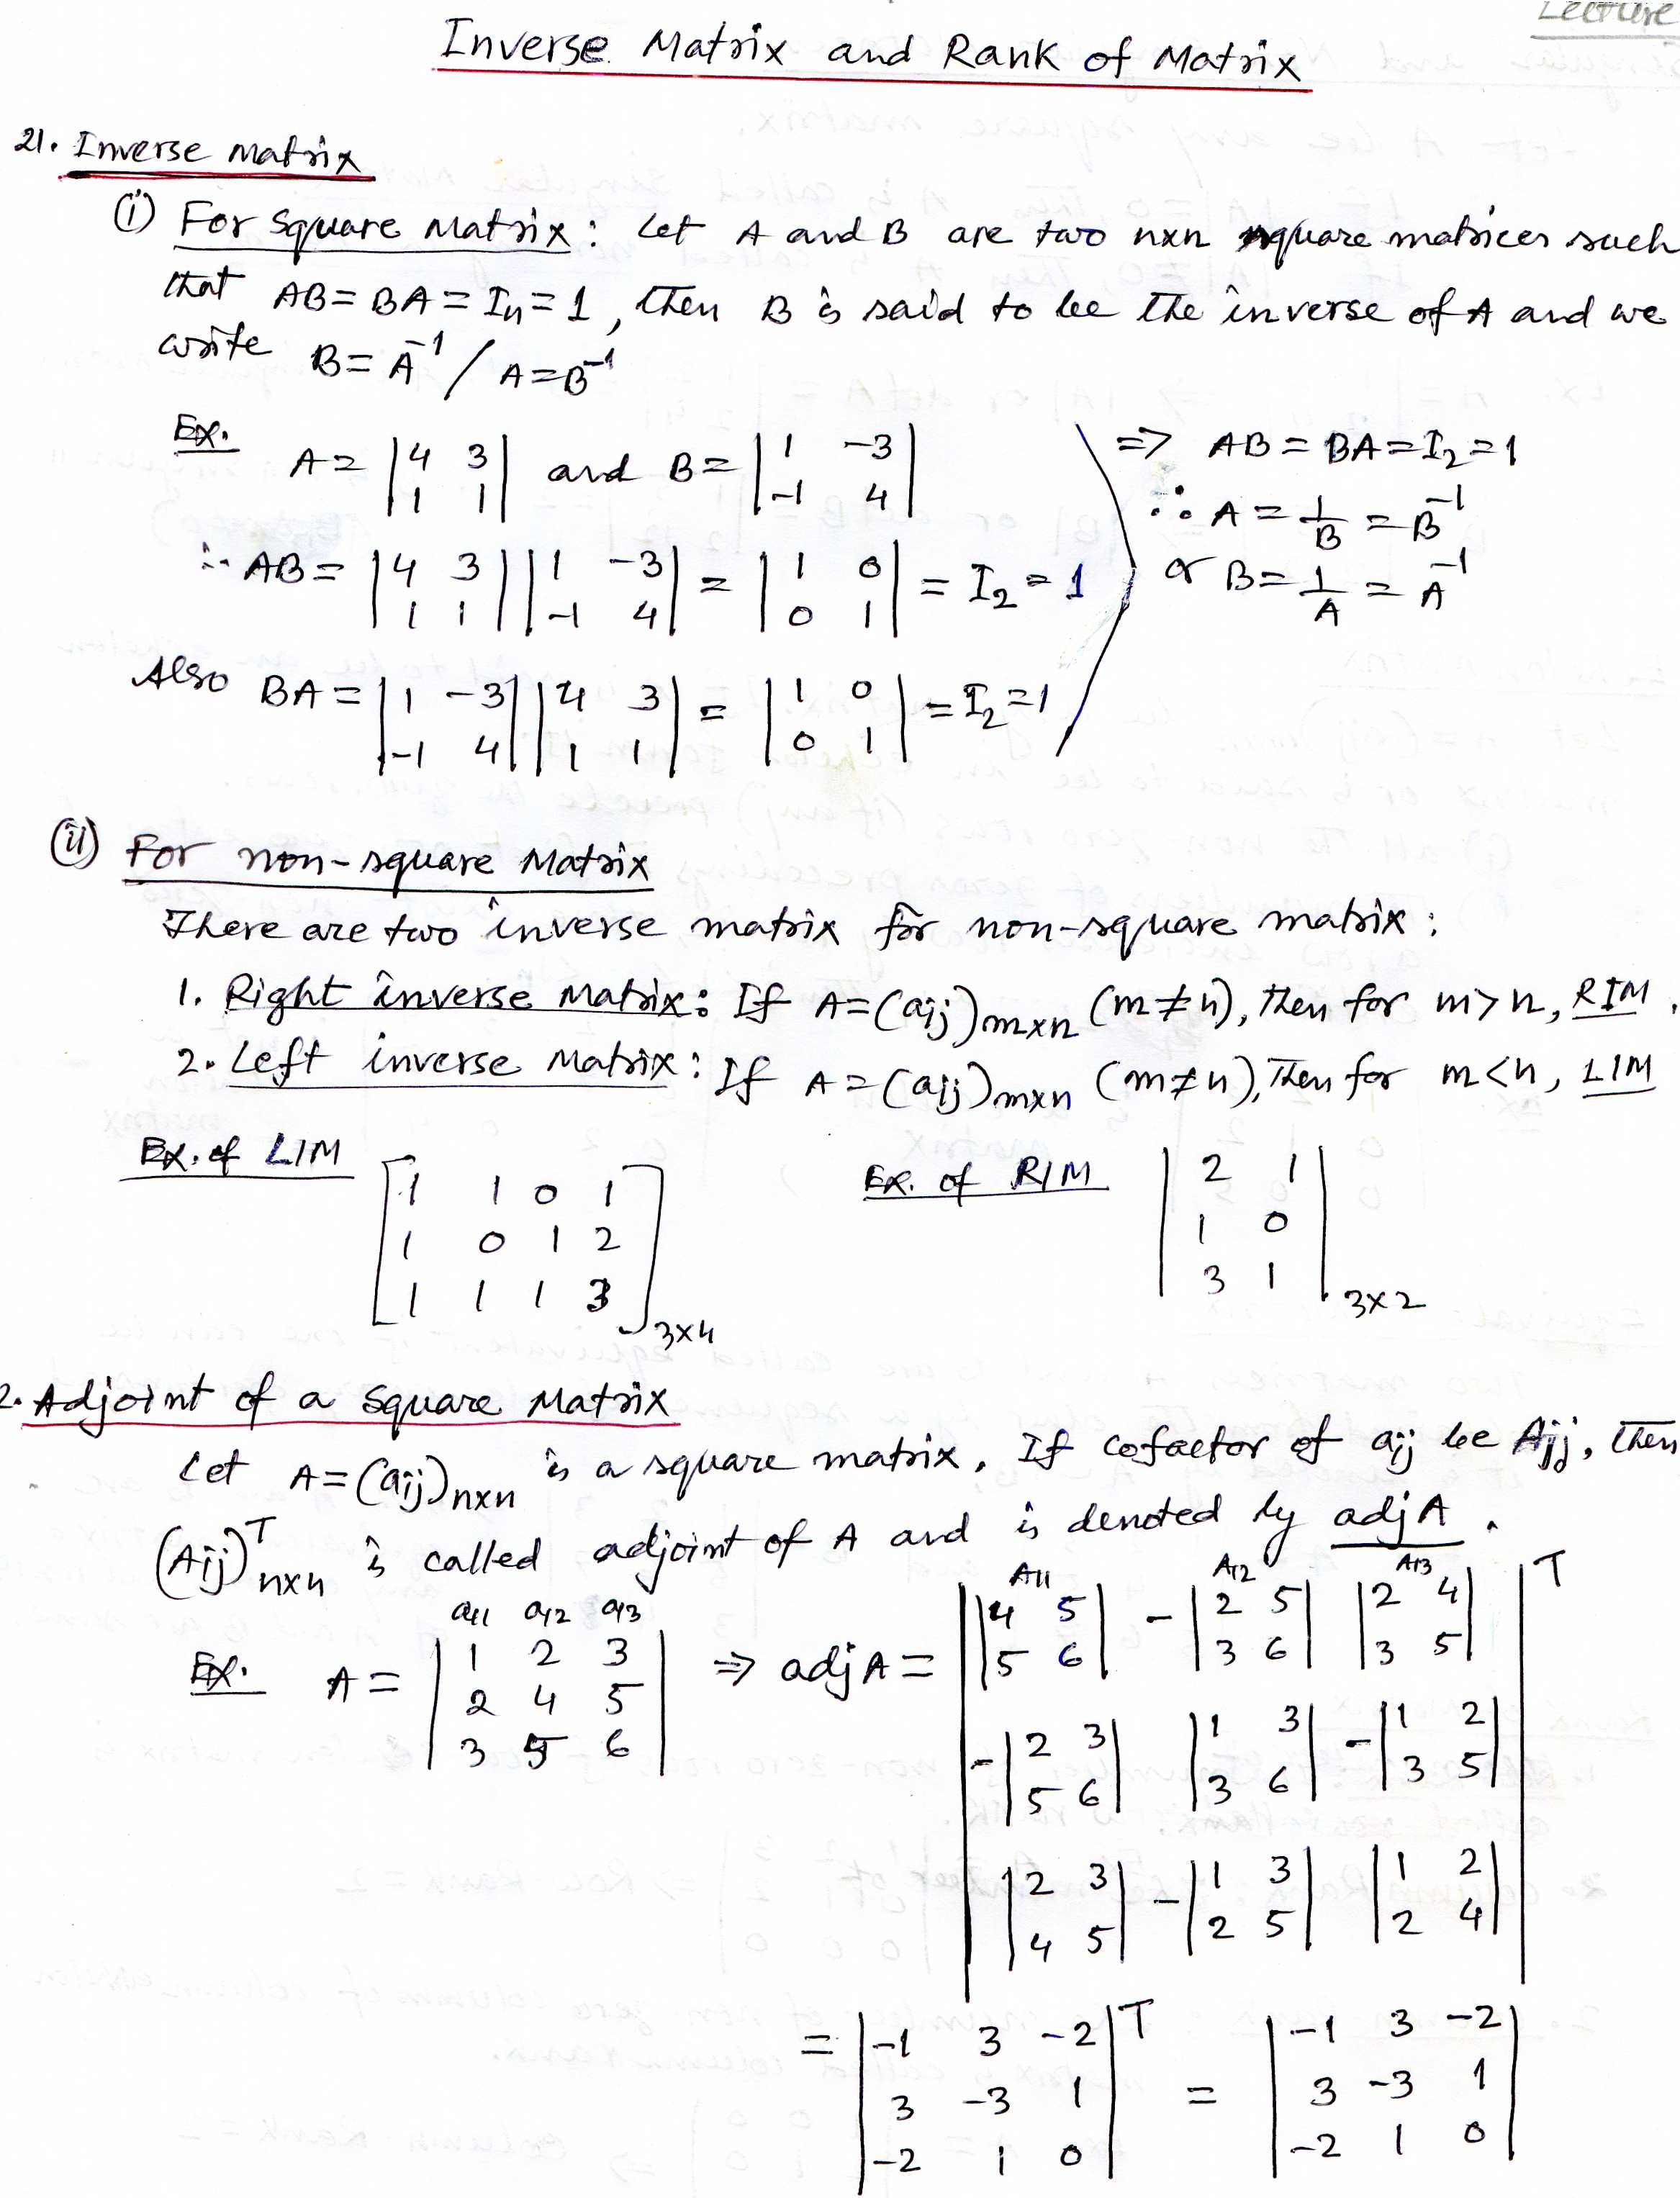 Lecture
Inverse Matrix and Rank of Matrix
21. Inverse Matrix
(i) For Square Matrix: Let A and B are two nxn square matrices such
that AB = BA = Iₙ = 1, then B is said to be the inverse of A and we
write B = A⁻¹ / A = B⁻¹
Ex. A = |4 3| and B = |1 -3|
|1 1| |-1 4|
⇒ AB = BA = I₂ = 1
∴ A = 1/B = B⁻¹
or B = 1/A = A⁻¹
∴ AB = |4 3| |1 -3| = |1 0| = I₂ = 1
|1 1| |-1 4| |0 1|
Also BA = |1 -3| |4 3| = |1 0| = I₂ = 1
|-1 4| |1 1| |0 1|
(ii) For non-square Matrix
There are two inverse matrix for non-square matrix:
1. Right inverse Matrix: If A = (aij)mxn (m≠n), then for m>n, RIM.
2. Left inverse Matrix: If A = (aij)mxn (m≠n), then for m<n, LIM
Ex. of LIM
[1 1 0 1
1 0 1 2
1 1 1 3]3x4
Ex. of RIM
|2 1|
|1 0|
|3 1|3x2
2. Adjoint of a Square Matrix
Let A = (aij)nxn is a square matrix. If cofactor of aij be Aij, then
(Aij)ᵀnxn is called adjoint of A and is denoted by adjA.
a11 a12 a13
Ex. A = |1 2 3|
|2 4 5|
|3 5 6|
A11 A12 A13
⇒ adjA = | |4 5| -|2 5| |2 4| |T
|5 6| |3 6| |3 5|
-|2 3| |1 3| -|1 2|
|5 6| |3 6| |3 5|
|2 3| -|1 3| |1 2|
|4 5| |2 5| |2 4|
= |-1 3 -2|T = |-1 3 -2|
|3 -3 1| |3 -3 1|
|-2 1 0| |-2 1 0|